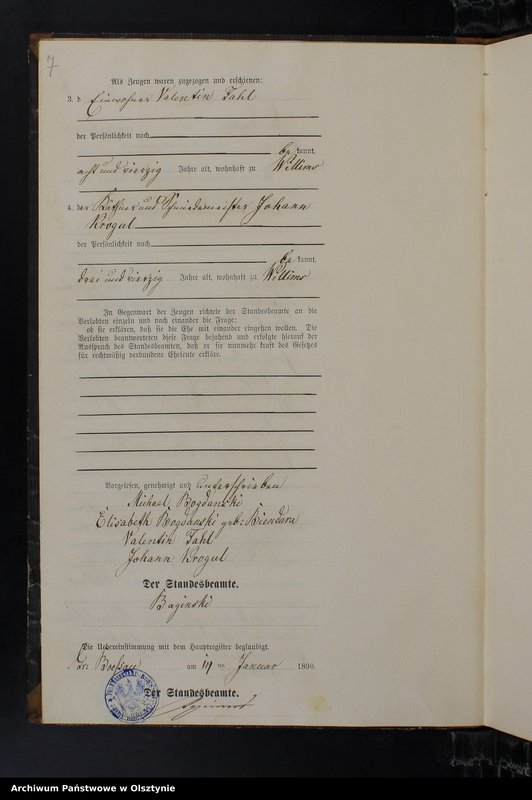 7
Als Zeugen waren zugezogen und erschienen:
3. d Einwohner Valentin Fahl
der Persönlichkeit nach
be kannt,
acht und vierzig Jahre alt, wohnhaft zu Willims
4. der Käthner und Schmiedemeister Johann
Krogul
der Persönlichkeit nach
be kannt,
drei und vierzig Jahre alt, wohnhaft zu Willims
In Gegenwart der Zeugen richtete der Standesbeamte an die
Verlobten einzeln und nach einander die Frage:
ob sie erklären, daß sie die Ehe mit einander eingehen wollen. Die
Verlobten beantworteten diese Frage bejahend und erfolgte hierauf der
Ausspruch des Standesbeamten, daß er sie nunmehr kraft des Gesetzes
für rechtmäßig verbundene Eheleute erkläre.
Vorgelesen, genehmigt und unterschrieben
Michael Bogdanski
Elisabeth Bogdanski geb: Biendara
Valentin Fahl
Johann Krogul
Der Standesbeamte.
Baginski
Die Uebereinstimmung mit dem Hauptregister beglaubigt.
Gr: Boessau am 14 ten Januar 1890.
Der Standesbeamte.
Archiwum Państwowe w Olsztynie